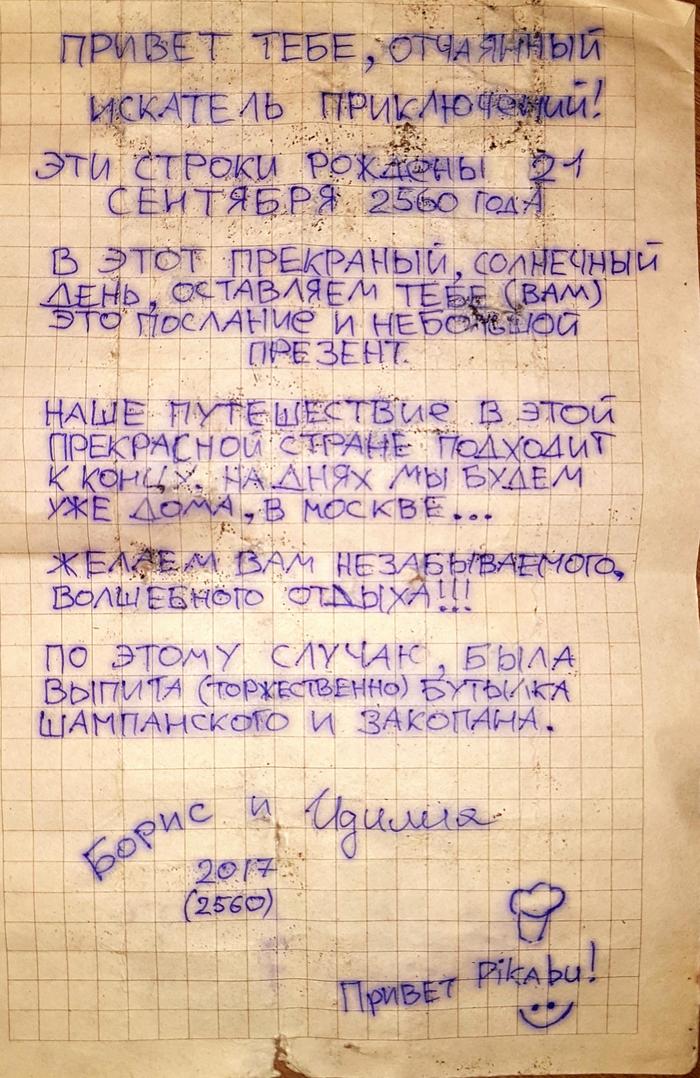 ПРИВЕТ ТЕБЕ, ОТЧАЯННЫЙ
ИСКАТЕЛЬ ПРИКЛЮЧЕНИЙ!
ЭТИ СТРОКИ РОЖДЕНЫ 21
СЕНТЯБРЯ 2560 ГОДА
В ЭТОТ ПРЕКРАНЫЙ, СОЛНЕЧНЫЙ
ДЕНЬ, ОСТАВЛЯЕМ ТЕБЕ (ВАМ)
ЭТО ПОСЛАНИЕ И НЕБОЛЬШОЙ
ПРЕЗЕНТ.
НАШЕ ПУТЕШЕСТВИЕ В ЭТОЙ
ПРЕКРАСНОЙ СТРАНЕ ПОДХОДИТ
К КОНЦУ. НА ДНЯХ МЫ БУДЕМ
УЖЕ ДОМА, В МОСКВЕ...
ЖЕЛАЕМ ВАМ НЕЗАБЫВАЕМОГО,
ВОЛШЕБНОГО ОТДЫХА!!!
ПО ЭТОМУ СЛУЧАЮ, БЫЛА
ВЫПИТА (ТОРЖЕСТВЕННО) БУТЫЛКА
ШАМПАНСКОГО И ЗАКОПАНА.
Борис и Идилия
2017
(2560)
Привет Pikabu!